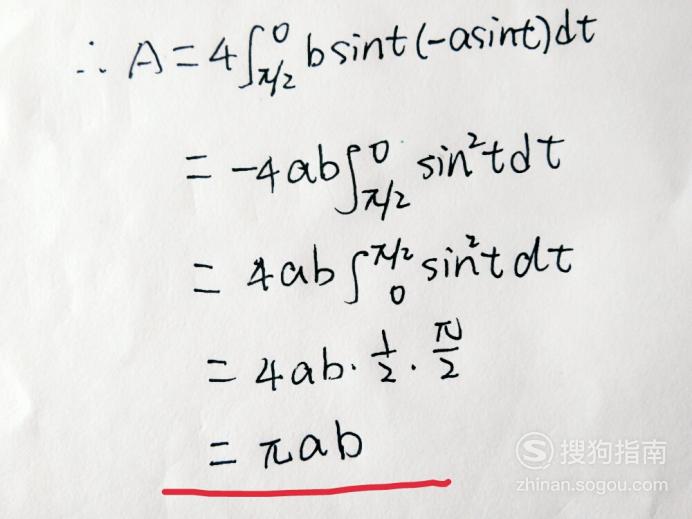 ∴ A = 4∫_{π/2}^{0} b sint (-a sint) dt
= -4ab∫_{π/2}^{0} sin²t dt
= 4ab∫_{0}^{π/2} sin²t dt
= 4ab · 1/2 · π/2
= πab
S 搜狗指南
zhinan.sogou.com